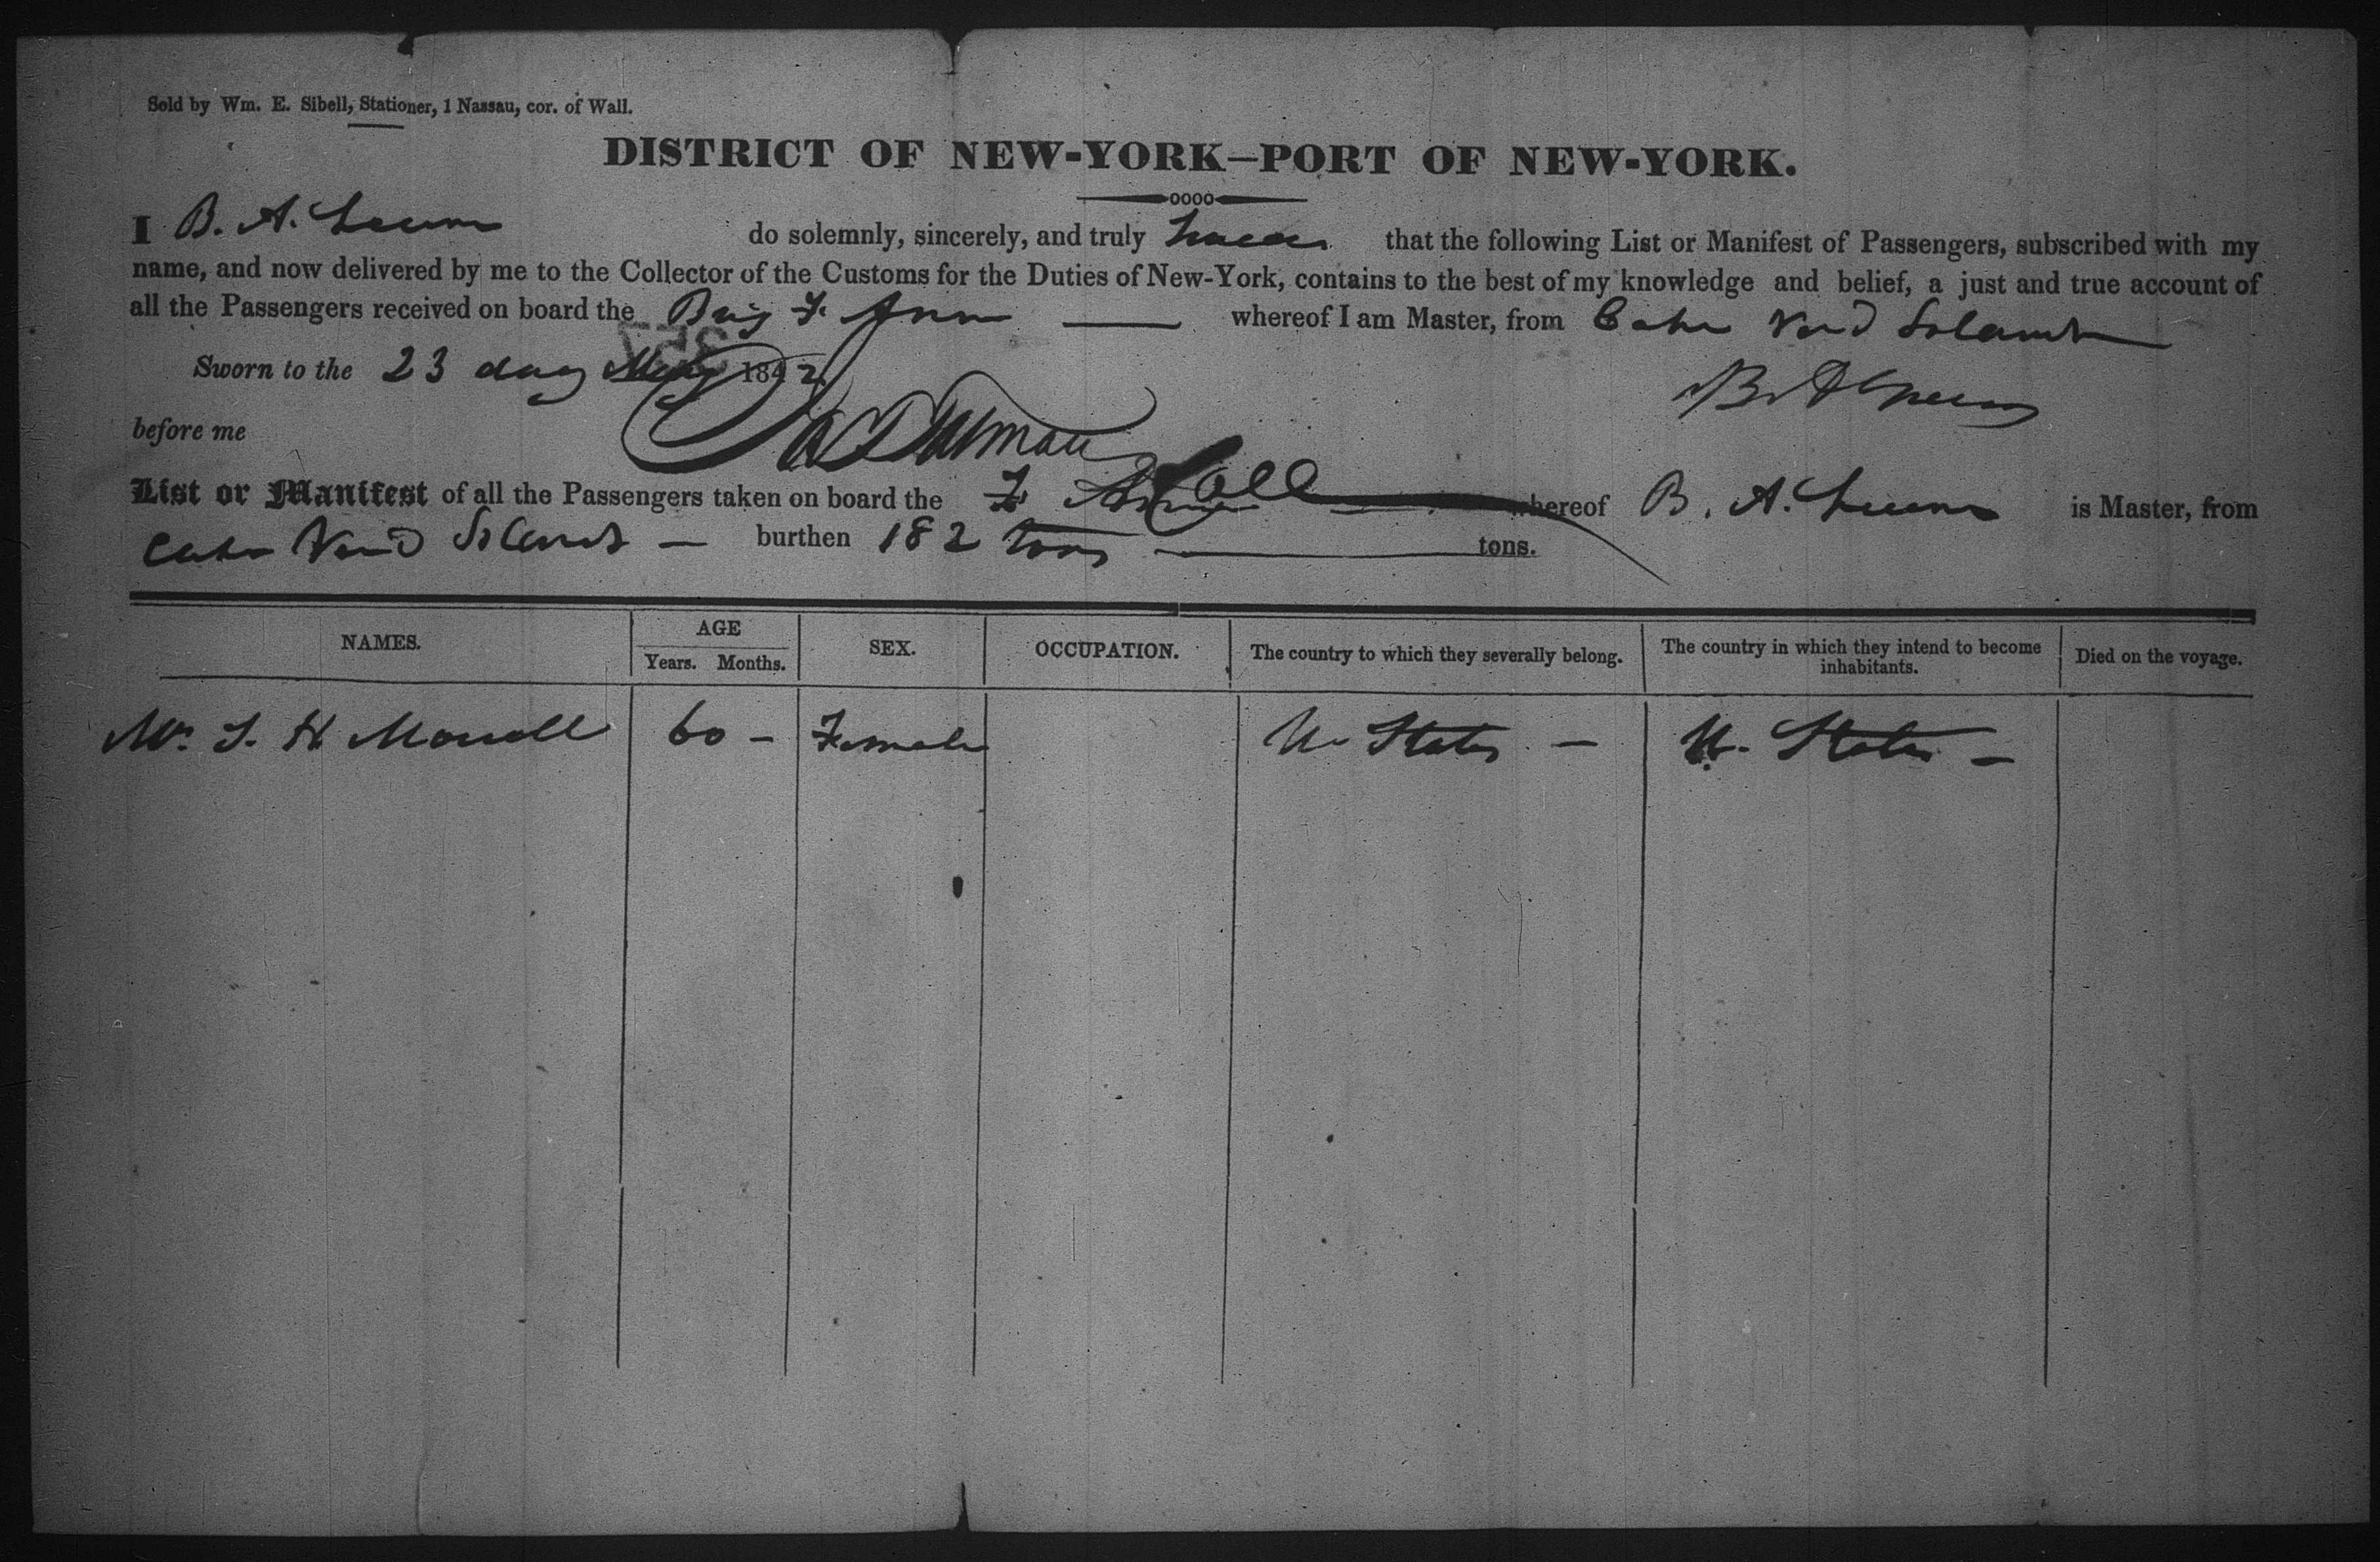 Sold by Wm. E. Sibell, Stationer, 1 Nassau, cor. of Wall.
DISTRICT OF NEW-YORK—PORT OF NEW-YORK.
I B. A. do solemnly, sincerely, and truly Swear that the following List or Manifest of Passengers, subscribed with my
name, and now delivered by me to the Collector of the Customs for the Duties of New-York, contains to the best of my knowledge and belief, a just and true account of
all the Passengers received on board the Brig F. Ann — whereof I am Master, from Cape Verd Islands
Sworn to the 23 day May 1842
before me
List or Manifest of all the Passengers taken on board the F. whereof B. A. is Master, from
Cape Verd Islands — burthen 182 tons — tons.
NAMES. AGE Years. Months. SEX. OCCUPATION. The country to which they severally belong. The country in which they intend to become inhabitants. Died on the voyage.
S. H 60 – Female U. States – U. States –